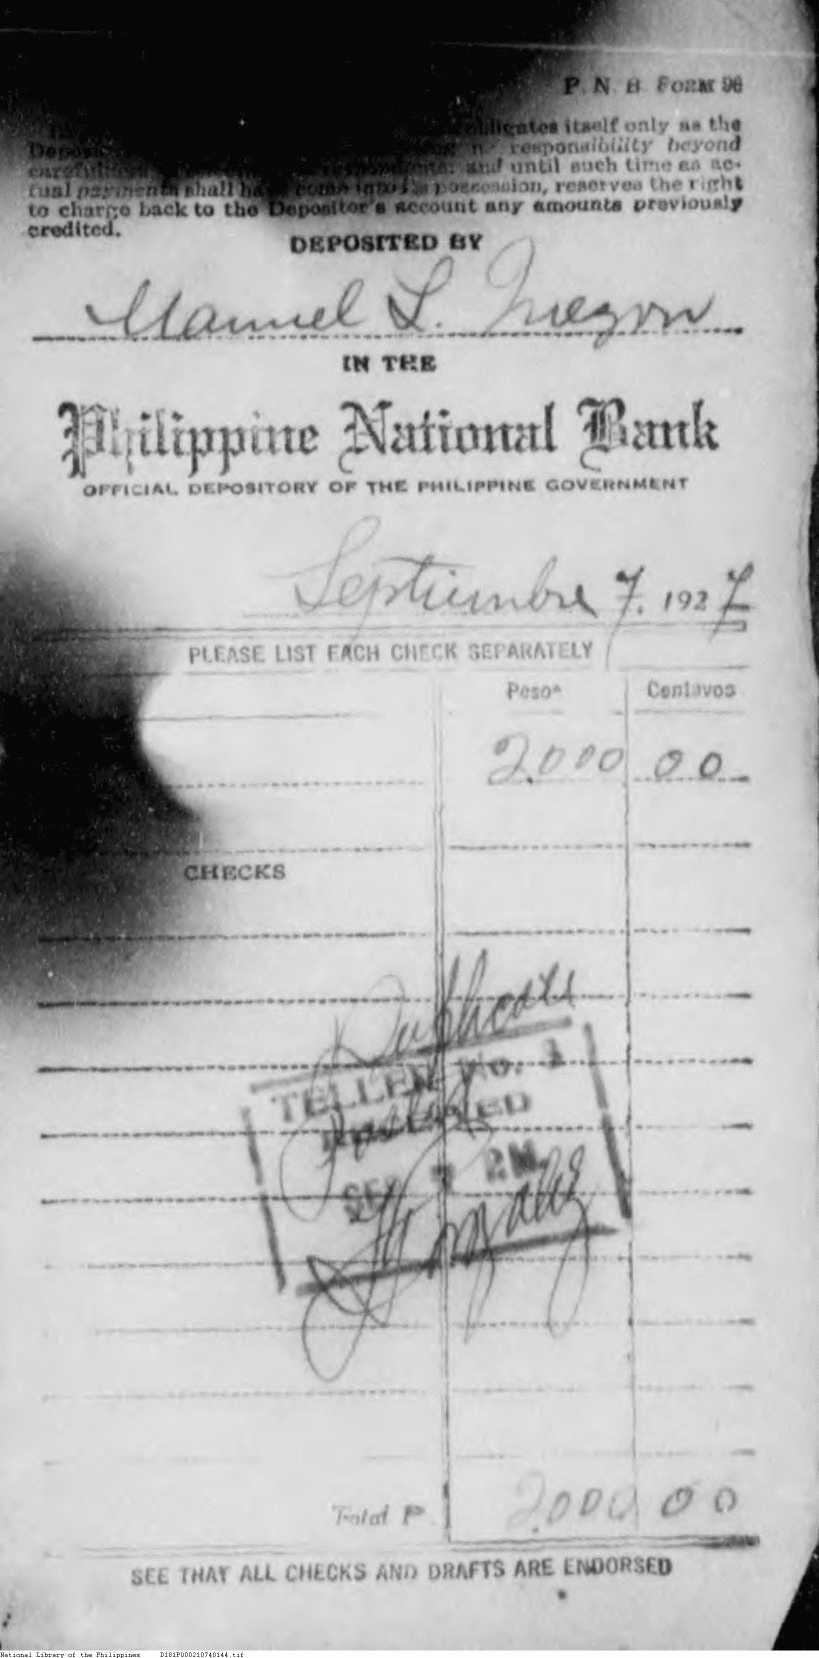 P. N. B. FORM 96
itself only as the
responsibility beyond
and until such time as ac-
tual payments shall have come into its possession, reserves the right
to charge back to the Depositor's account any amounts previously
credited.
DEPOSITED BY
Manuel L. Quezon
IN THE
Philippine National Bank
OFFICIAL DEPOSITORY OF THE PHILIPPINE GOVERNMENT
Septiembre 7, 1927
PLEASE LIST EACH CHECK SEPARATELY
Pesos Centavos
2,000 00
CHECKS
Duplicate
TELLER No. 1
RECEIVED
SEP 7 PM
Total P 2,000 00
SEE THAT ALL CHECKS AND DRAFTS ARE ENDORSED
National Library of the Philippines D181P000210740144.tif